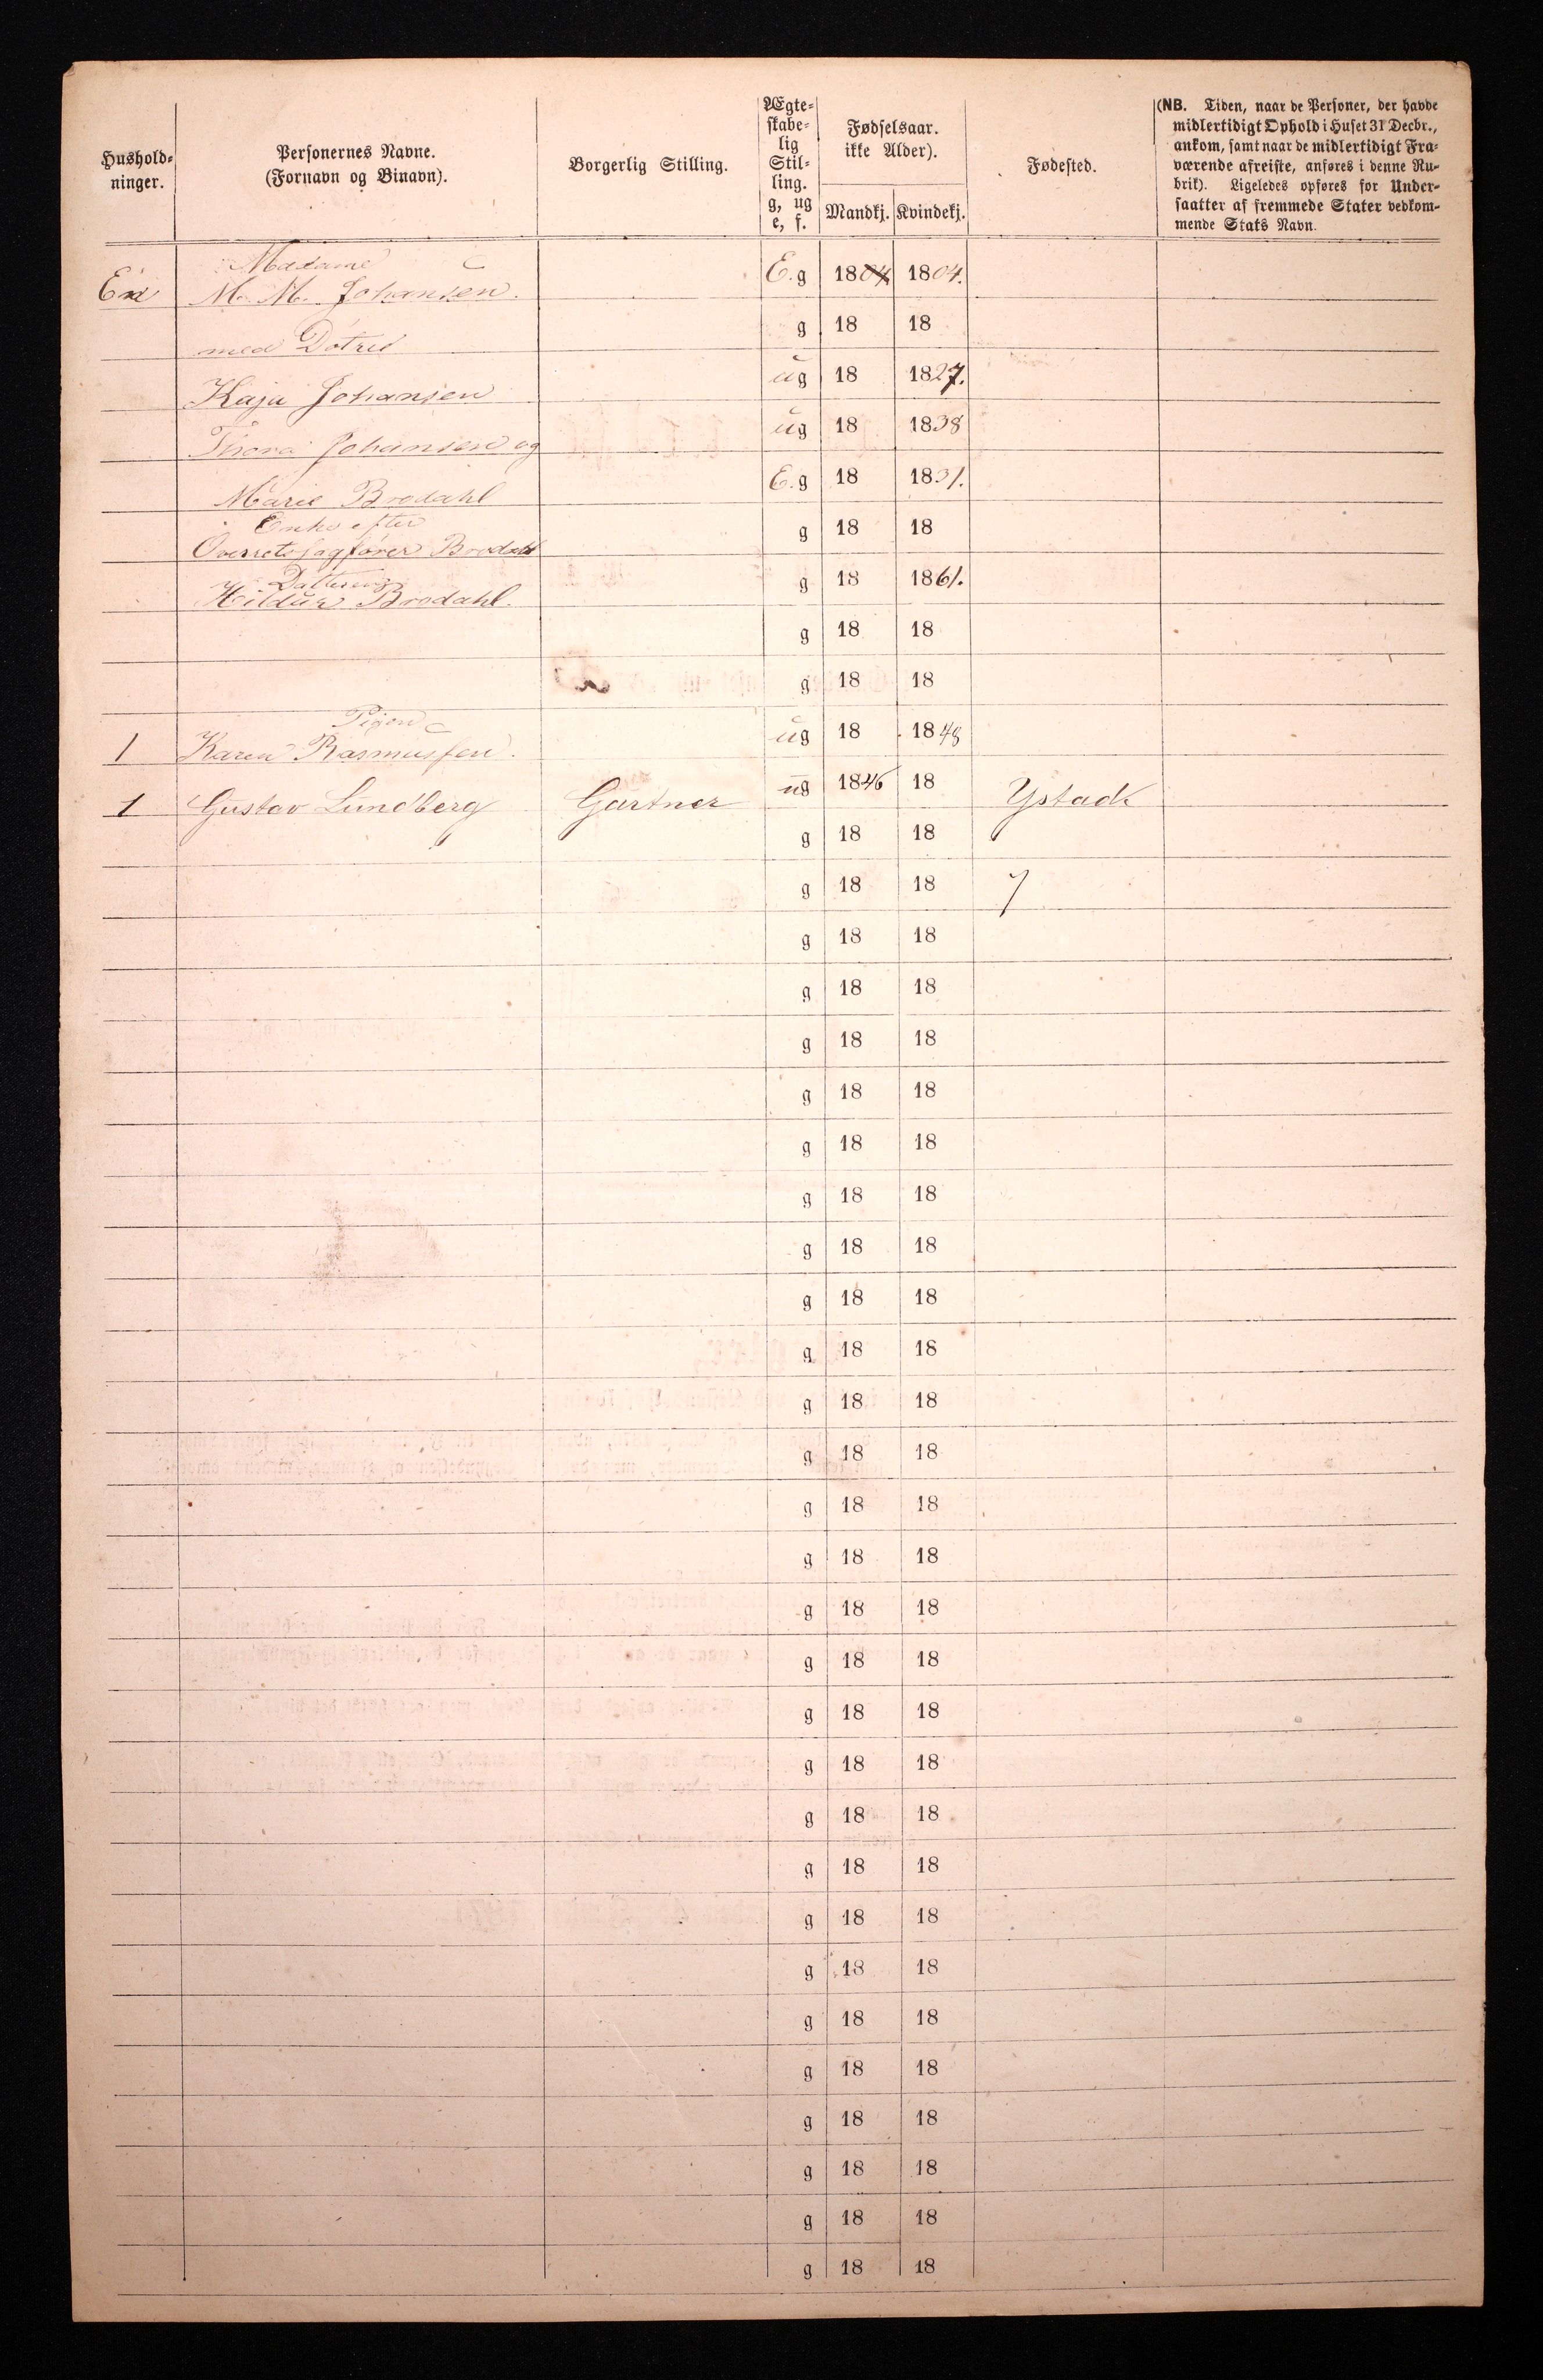 Hushold-
ninger.
Personernes Navne.
(Fornavn og Binavn).
Borgerlig Stilling.
Ægte-
skabe-
lig
Stil-
ling.
g, ug
e, f.
Fødselsaar.
ikke Alder).
Mandkj. Kvindekj.
Fødested.
(NB. Tiden, naar de Personer, der havde
midlertidigt Ophold i Huset 31 Decbr.,
ankom, samt naar de midlertidigt Fra-
værende afreiste, anføres i denne Ru-
brik). Ligeledes opføres for Under-
saatter af fremmede Stater vedkom-
mende Stats Navn.
Madame
En M. M. Johansen. E.g 1804 1804.
med Døtre g 18 18
Kaja Johansen ug 18 1827.
Thora Johansen og ug 18 1838
Marie Brodahl E.g 18 1831.
Enke efter
Overretssagfører Brodahl g 18 18
Datteren
Hildur Brodahl. g 18 1861.
g 18 18
g 18 18
Pigen
1 Karen Rasmussen. ug 18 1848
1 Gustav Lundberg Gartner ug 1846 18 Ystad
g 18 18
g 18 18 7
g 18 18
g 18 18
g 18 18
g 18 18
g 18 18
g 18 18
g 18 18
g 18 18
g 18 18
g 18 18
g 18 18
g 18 18
g 18 18
g 18 18
g 18 18
g 18 18
g 18 18
g 18 18
g 18 18
g 18 18
g 18 18
g 18 18
g 18 18
g 18 18
g 18 18
g 18 18
g 18 18